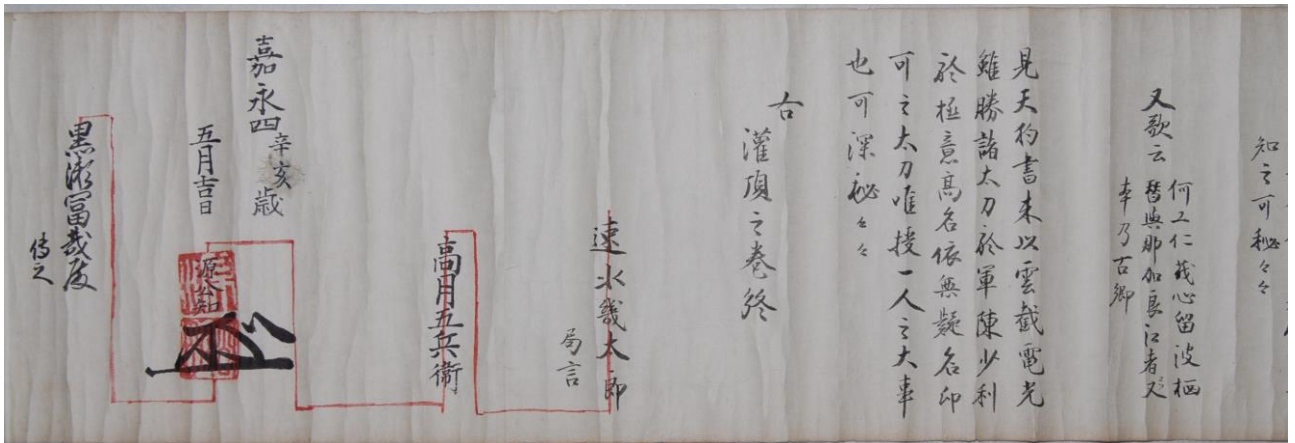 知之可秘々々
又歌云
何工仁我心留波栖
替與那加良江者又
本乃古郷
見天狗書末以雲截電光
雖勝諸太刀於軍陳少利
於極意高名依無疑名印
可之太刀唯授一人之大事
也可深秘々々
右
灌頂之巻終
速水幾太郎
局言
高月五兵衛
嘉永四辛亥歳
五月吉日
源公知
黒
冨哉殿
傳之